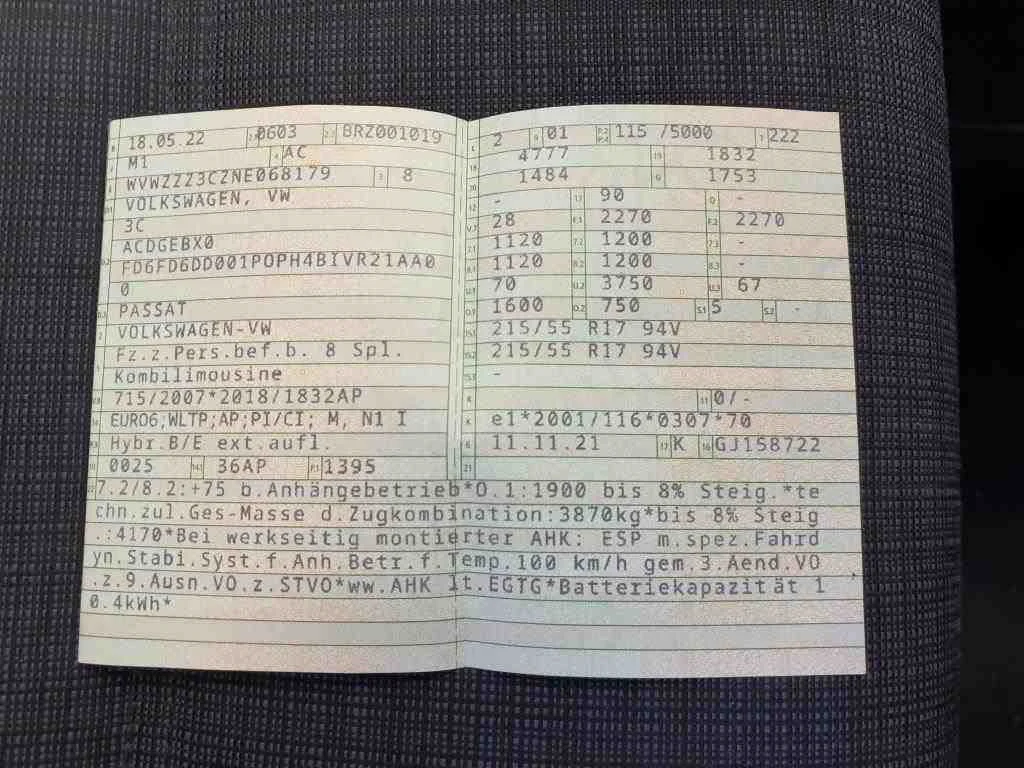 18.05.22 0603 BRZ001019
M1 AC
WVWZZZ3CZNE068179 8
VOLKSWAGEN, VW
3C
ACDGEBX0
FD6FD6DD001POPH4BIVR21AA0
0
PASSAT
VOLKSWAGEN-VW
Fz.z.Pers.bef.b. 8 Spl.
Kombilimousine
715/2007*2018/1832AP
EURO6;WLTP;AP;PI/CI; M, N1 I
Hybr.B/E ext.aufl.
0025 36AP P.1 1395
2 9 01 P.2 P.4 115 /5000 T 222
4777 19 1832
1484 G 1753
- 90 -
28 F.1 2270 F.2 2270
1120 7.2 1200 7.3 -
1120 8.2 1200 8.3 -
70 U.2 3750 U.3 67
1600 O.2 750 S.1 5 S.2 -
215/55 R17 94V
215/55 R17 94V
-
R 11 0/-
K e1*2001/116*0307*70
6 11.11.21 17 K 16 GJ158722
21
7.2/8.2:+75 b.Anhängebetrieb*O.1:1900 bis 8% Steig.*te
chn.zul.Ges-Masse d.Zugkombination:3870kg*bis 8% Steig
.:4170*Bei werkseitig montierter AHK: ESP m.spez.Fahrd
yn.Stabi.Syst.f.Anh.Betr.f.Temp.100 km/h gem.3.Aend.VO
.z.9.Ausn.VO.z.STVO*ww.AHK lt.EGTG*Batteriekapazität 1
0.4kWh*